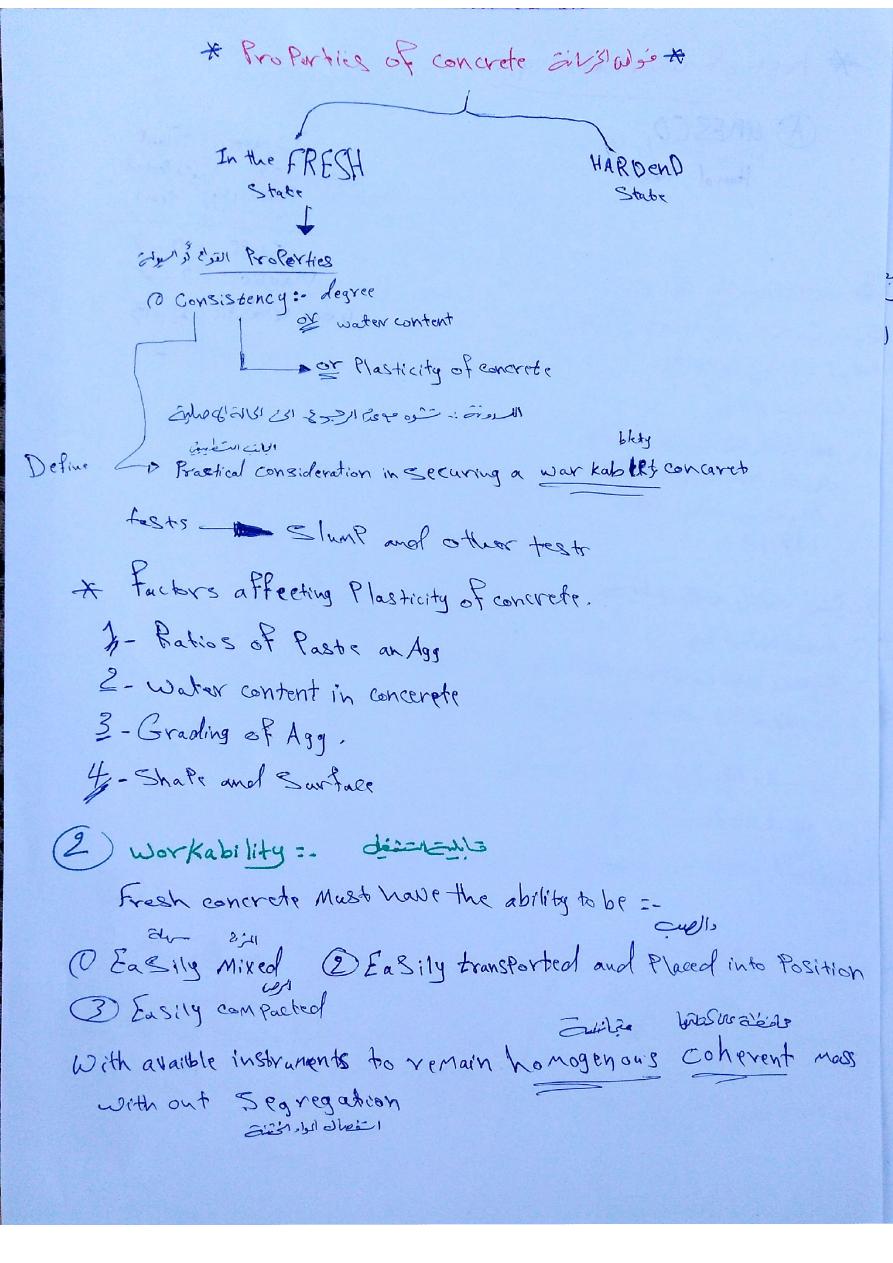 * Properties of concrete خواص الخرسانة *
In the FRESH State
HARDenD State
القوام أو السيولة Properties
① Consistency:- degree
or water content
or Plasticity of concrete
اللدونة :- تشوه مع عدم الرجوع الى الحالة الاصلية
الجانب التطبيقي
bkty
Define Practical consideration in securing a war kab concaret
tests Slump and other tests
* Factors affecting Plasticity of concrete.
1- Ratios of Paste an Agg
2- Water content in concerete
3- Grading of Agg.
4- Shape and Surface
② Workability :- قابلية التشغيل
Fresh concrete Must have the ability to be :-
سهلة المزج والصب
① Easily Mixed ② Easily transported and Placed into Position
الرص
③ Easily compacted
متجانسة محافظة على كتلتها
With availble instruments to remain homogenous coherent mass
with out Segregation
انفصال المواد الخشنة